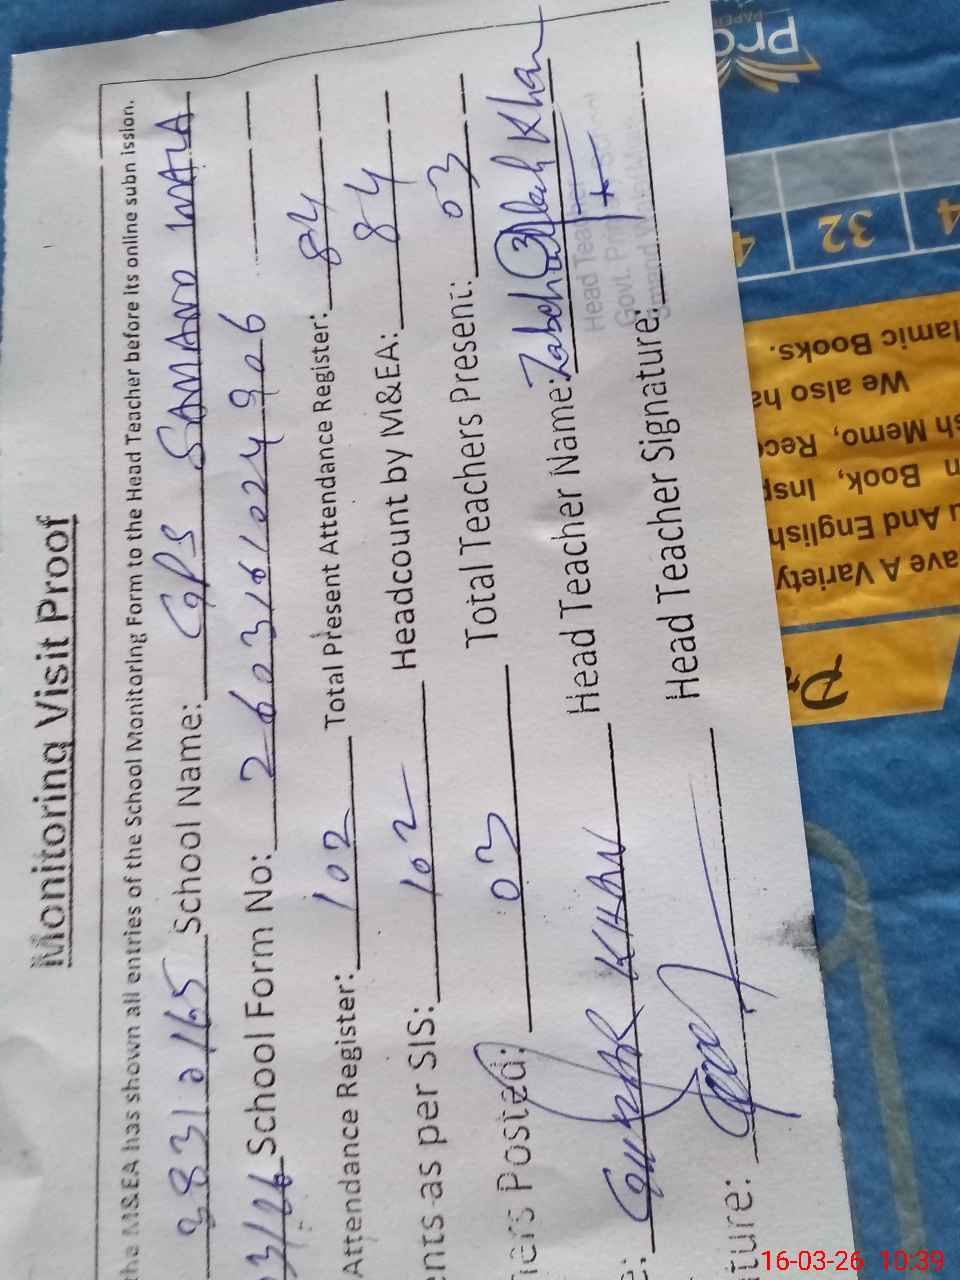 Monitoring Visit Proof
the M&EA has shown all entries of the School Monitoring Form to the Head Teacher before its online submission.
38312165 School Name: GPS SAMAND WALA
03/26 School Form No: 2603161024906
Attendance Register: 102 Total Present Attendance Register: 84
ents as per SIS: 102 Headcount by M&EA: 84
hers Posted: 03 Total Teachers Present: 03
KHAN Head Teacher Name: Zabeh Ullah Khan
ture: Head Teacher Signature:
Head Teacher
Govt. Primary
PAPER
Pro
4 32 4
lamic Books.
We also ha
sh Memo, Rec
n Book, Insp
u And English
ave A Variety
16-03-26 10:39